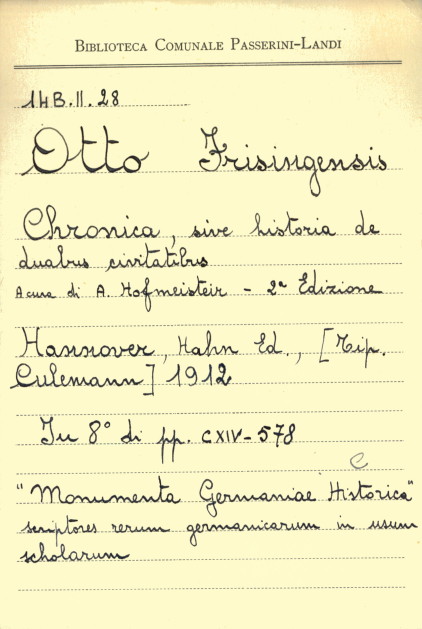 BIBLIOTECA COMUNALE PASSERINI-LANDI
14B.II.28
Otto Frisingensis
Chronica, sive historia de
duabus civitatibus
A cura di A. Hofmeisteir - 2ª Edizione
Hannover, Hahn Ed., [Tip.
Culemann] 1912
In 8° di pp. CXIV-578
C
"Monumenta Germaniae Historica"
scriptores rerum germanicarum in usum
scholarum